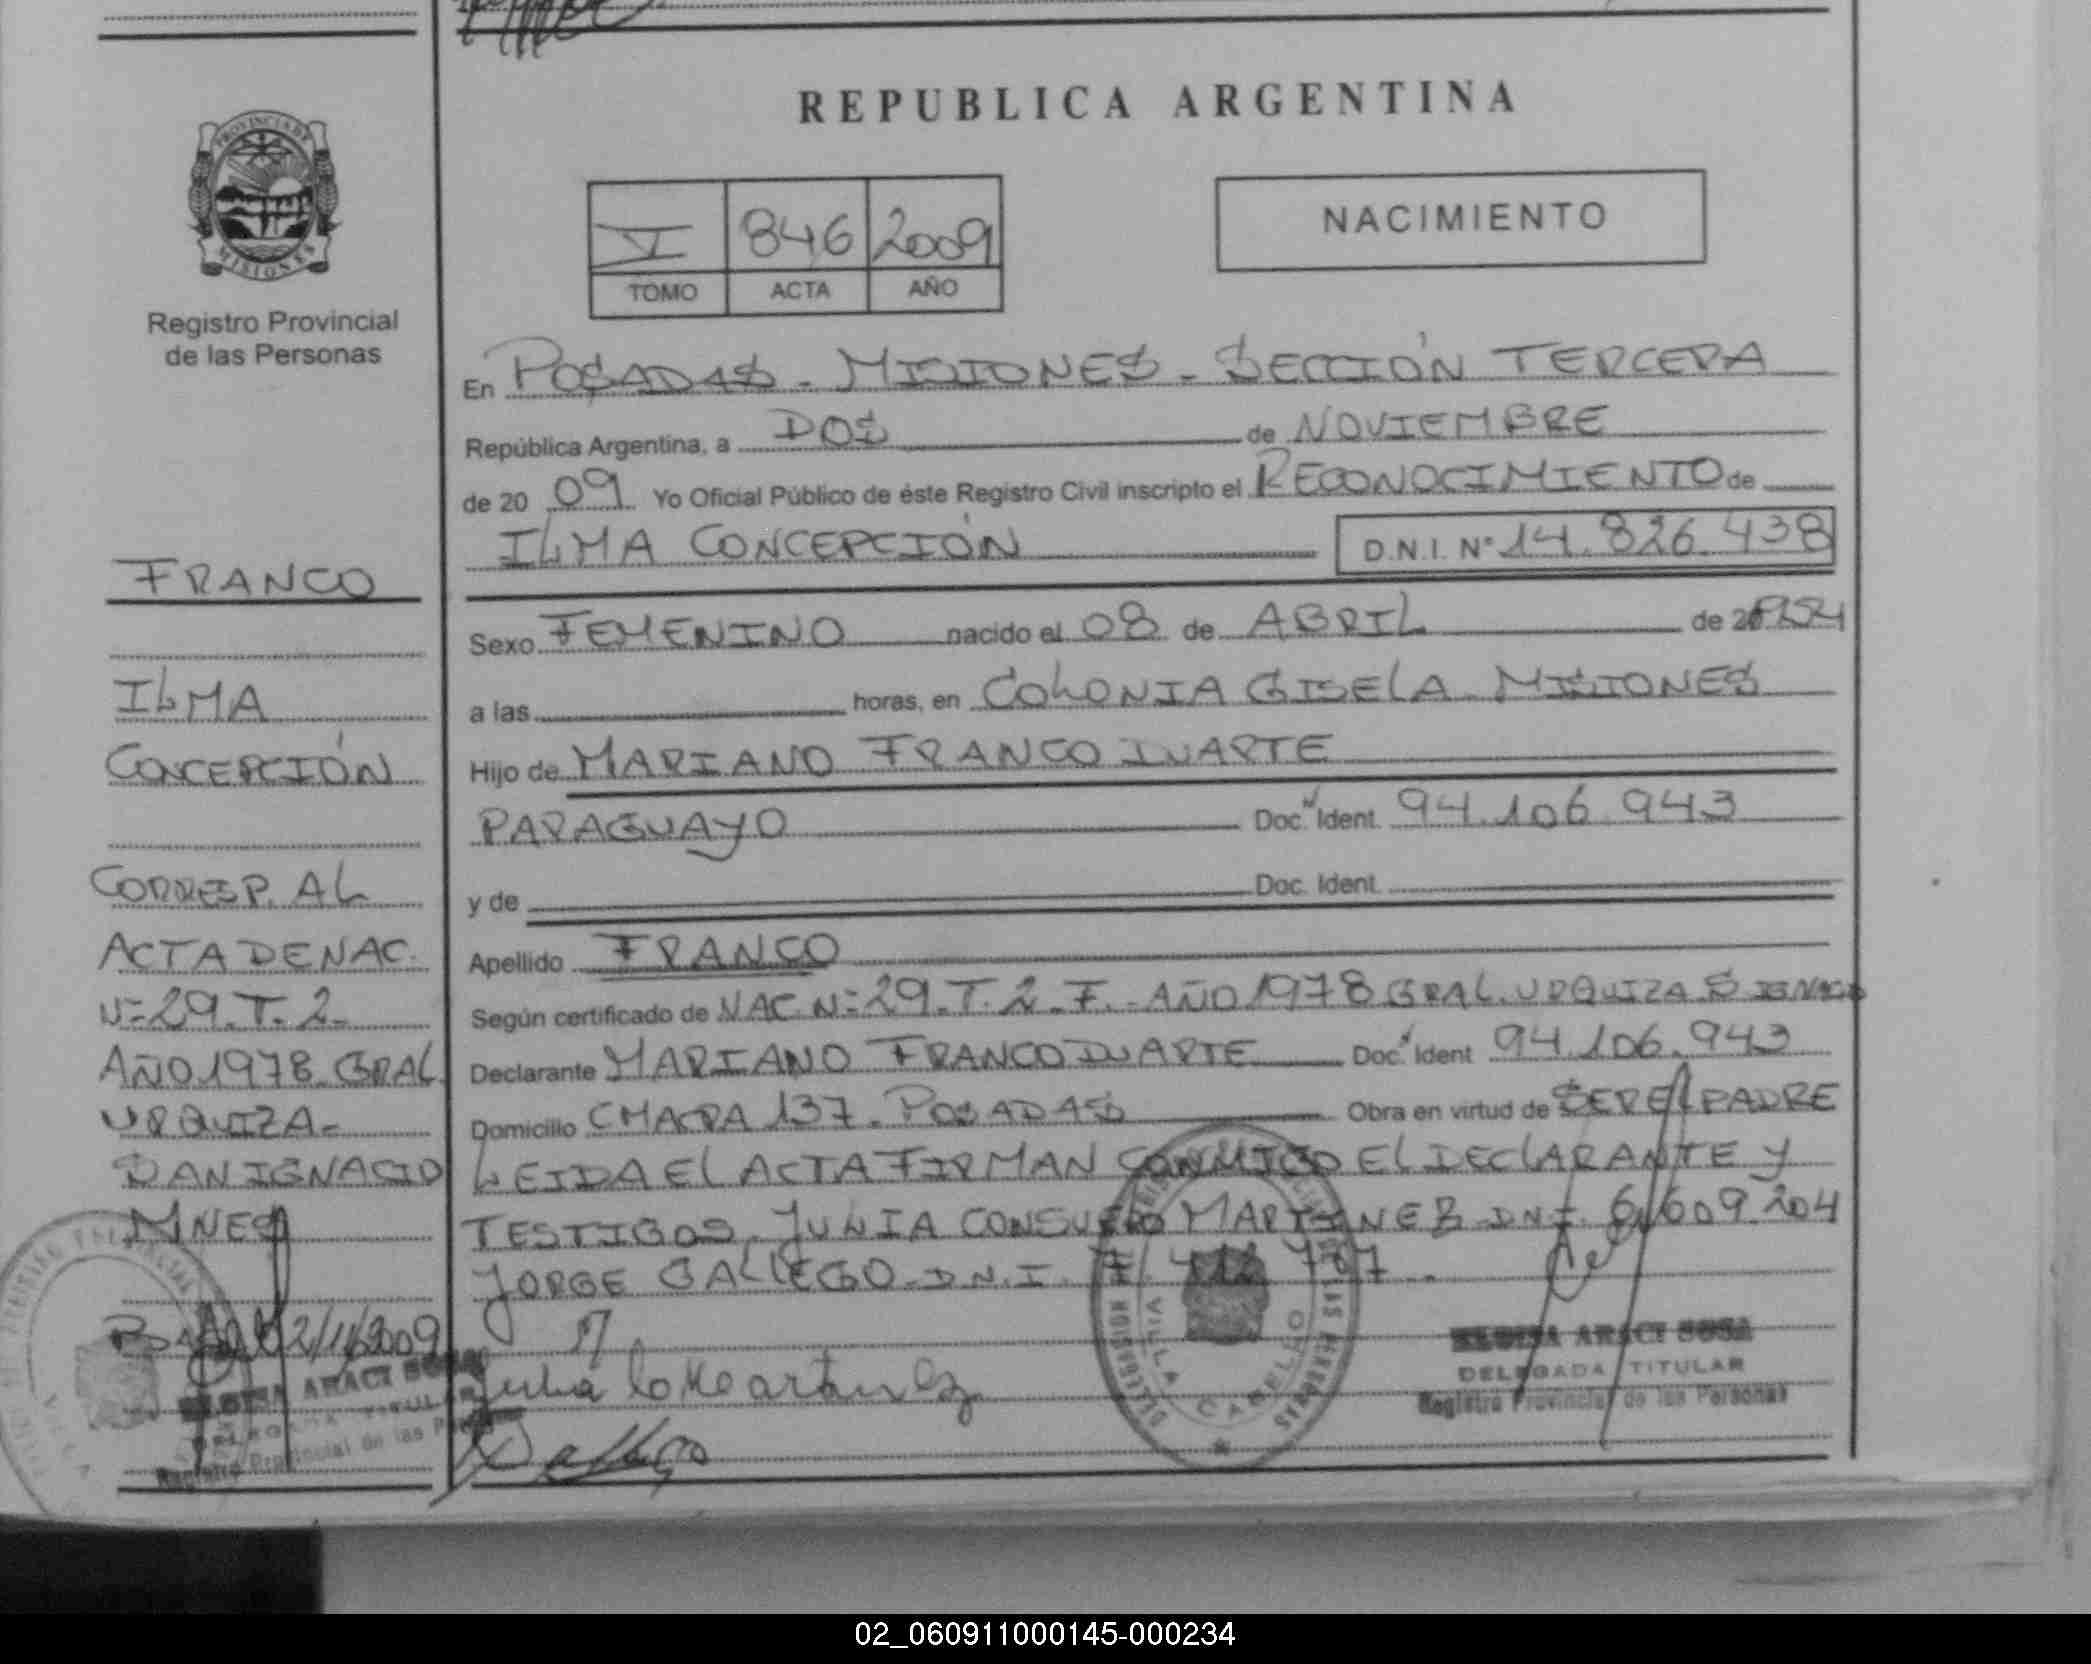 REPUBLICA ARGENTINA
PROVINCIA DE
MISIONES
Registro Provincial
de las Personas
V 846 2009
TOMO ACTA AÑO
NACIMIENTO
En POSADAS - MISIONES - SECCIÓN TERCERA
República Argentina, a DOS de NOVIEMBRE
de 20 09 Yo Oficial Público de éste Registro Civil inscripto el RECONOCIMIENTO de
ILMA CONCEPCIÓN D.N.I. Nº 14.826.438
Sexo FEMENINO nacido el 08 de ABRIL de
a las horas, en COLONIA GISELA MISIONES
Hijo de MARIANO FRANCO DUARTE
PARAGUAYO Doc. Ident. 94.106.943
y de Doc. Ident.
Apellido FRANCO
Según certificado de NAC. Nº 29. T. 2. F. - AÑO 1978 GRAL. URQUIZA S IGNACIO
Declarante MARIANO FRANCO DUARTE Doc. Ident 94.106.943
Domicilio CHACRA 137 - POSADAS Obra en virtud de SER EL PADRE
LEIDA EL ACTA FIRMAN CONMIGO EL DECLARANTE Y
TESTIGOS. JULIA CONSUELO MARTINEZ DNI. 6.609.204
JORGE GALLEGO - D.N.I.
FRANCO
ILMA
CONCEPCIÓN
CORRESP. AL
ACTA DE NAC.
Nº 29. T. 2.
AÑO 1978 GRAL.
URQUIZA -
SAN IGNACIO
MNES
POSADAS 02/11/2009
REGINA ARACI SOSA
DELEGADA TITULAR
Registro Provincial de las Personas
Julia Co Martinez
VILLA CABELLO
REGINA ARACI SOSA
DELEGADA TITULAR
Registro Provincial de las Personas
02_060911000145-000234